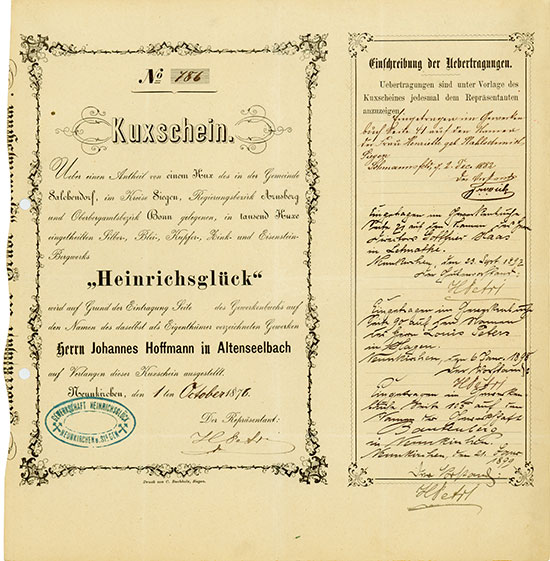 No 786
Kuxschein.
Ueber einen Antheil von einem Kux des in der Gemeinde
Salchendorf, im Kreise Siegen, Regierungsbezirk Arnsberg
und Oberbergamtsbezirk Bonn gelegenen, in tausend Kuxe
eingetheilten Silber-, Blei-, Kupfer-, Zink- und Eisenstein-
Bergwerks
„Heinrichsglück“
wird auf Grund der Eintragung Seite des Gewerkenbuchs auf
den Namen des daselbst als Eigenthümer verzeichneten Gewerken
Herrn Johannes Hoffmann in Altenseelbach
auf Verlangen dieser Kuxschein ausgestellt.
Neunkirchen, den 1ten October 1876.
Der Repräsentant:
GEWERKSCHAFT HEINRICHSGLÜCK
NEUNKIRCHEN B. SIEGEN
Druck von C. Buchholz, Hagen.
Einschreibung der Uebertragungen.
Uebertragungen sind unter Vorlage des
Kuxscheines jedesmal dem Repräsentanten
anzuzeigen.
Eingetragen im Gewerken
buch Seite 41 auf den Namen
der Frau Henriette geb.
Siegen
2. Dec. 1882
Der Vorstand
Eingetragen im Gewerkenbuche
Seite auf den Namen
Director Haas
in Letmathe.
Neunkirchen, den 23 Sept 1897
Der Grubenvorstand:
Eingetragen im Gewerkenbuche
Seite 90 auf den Namen
des Herrn Louis Peters
in Hagen.
Neunkirchen, den 6 Janr. 1898
Der Vorstand:
Eingetragen im Gewerken
buche Seite 105 auf den
Namen der Gewerkschaft
in Neunkirchen.
Neunkirchen, den 21. Janr
1899
Der Vorstand: